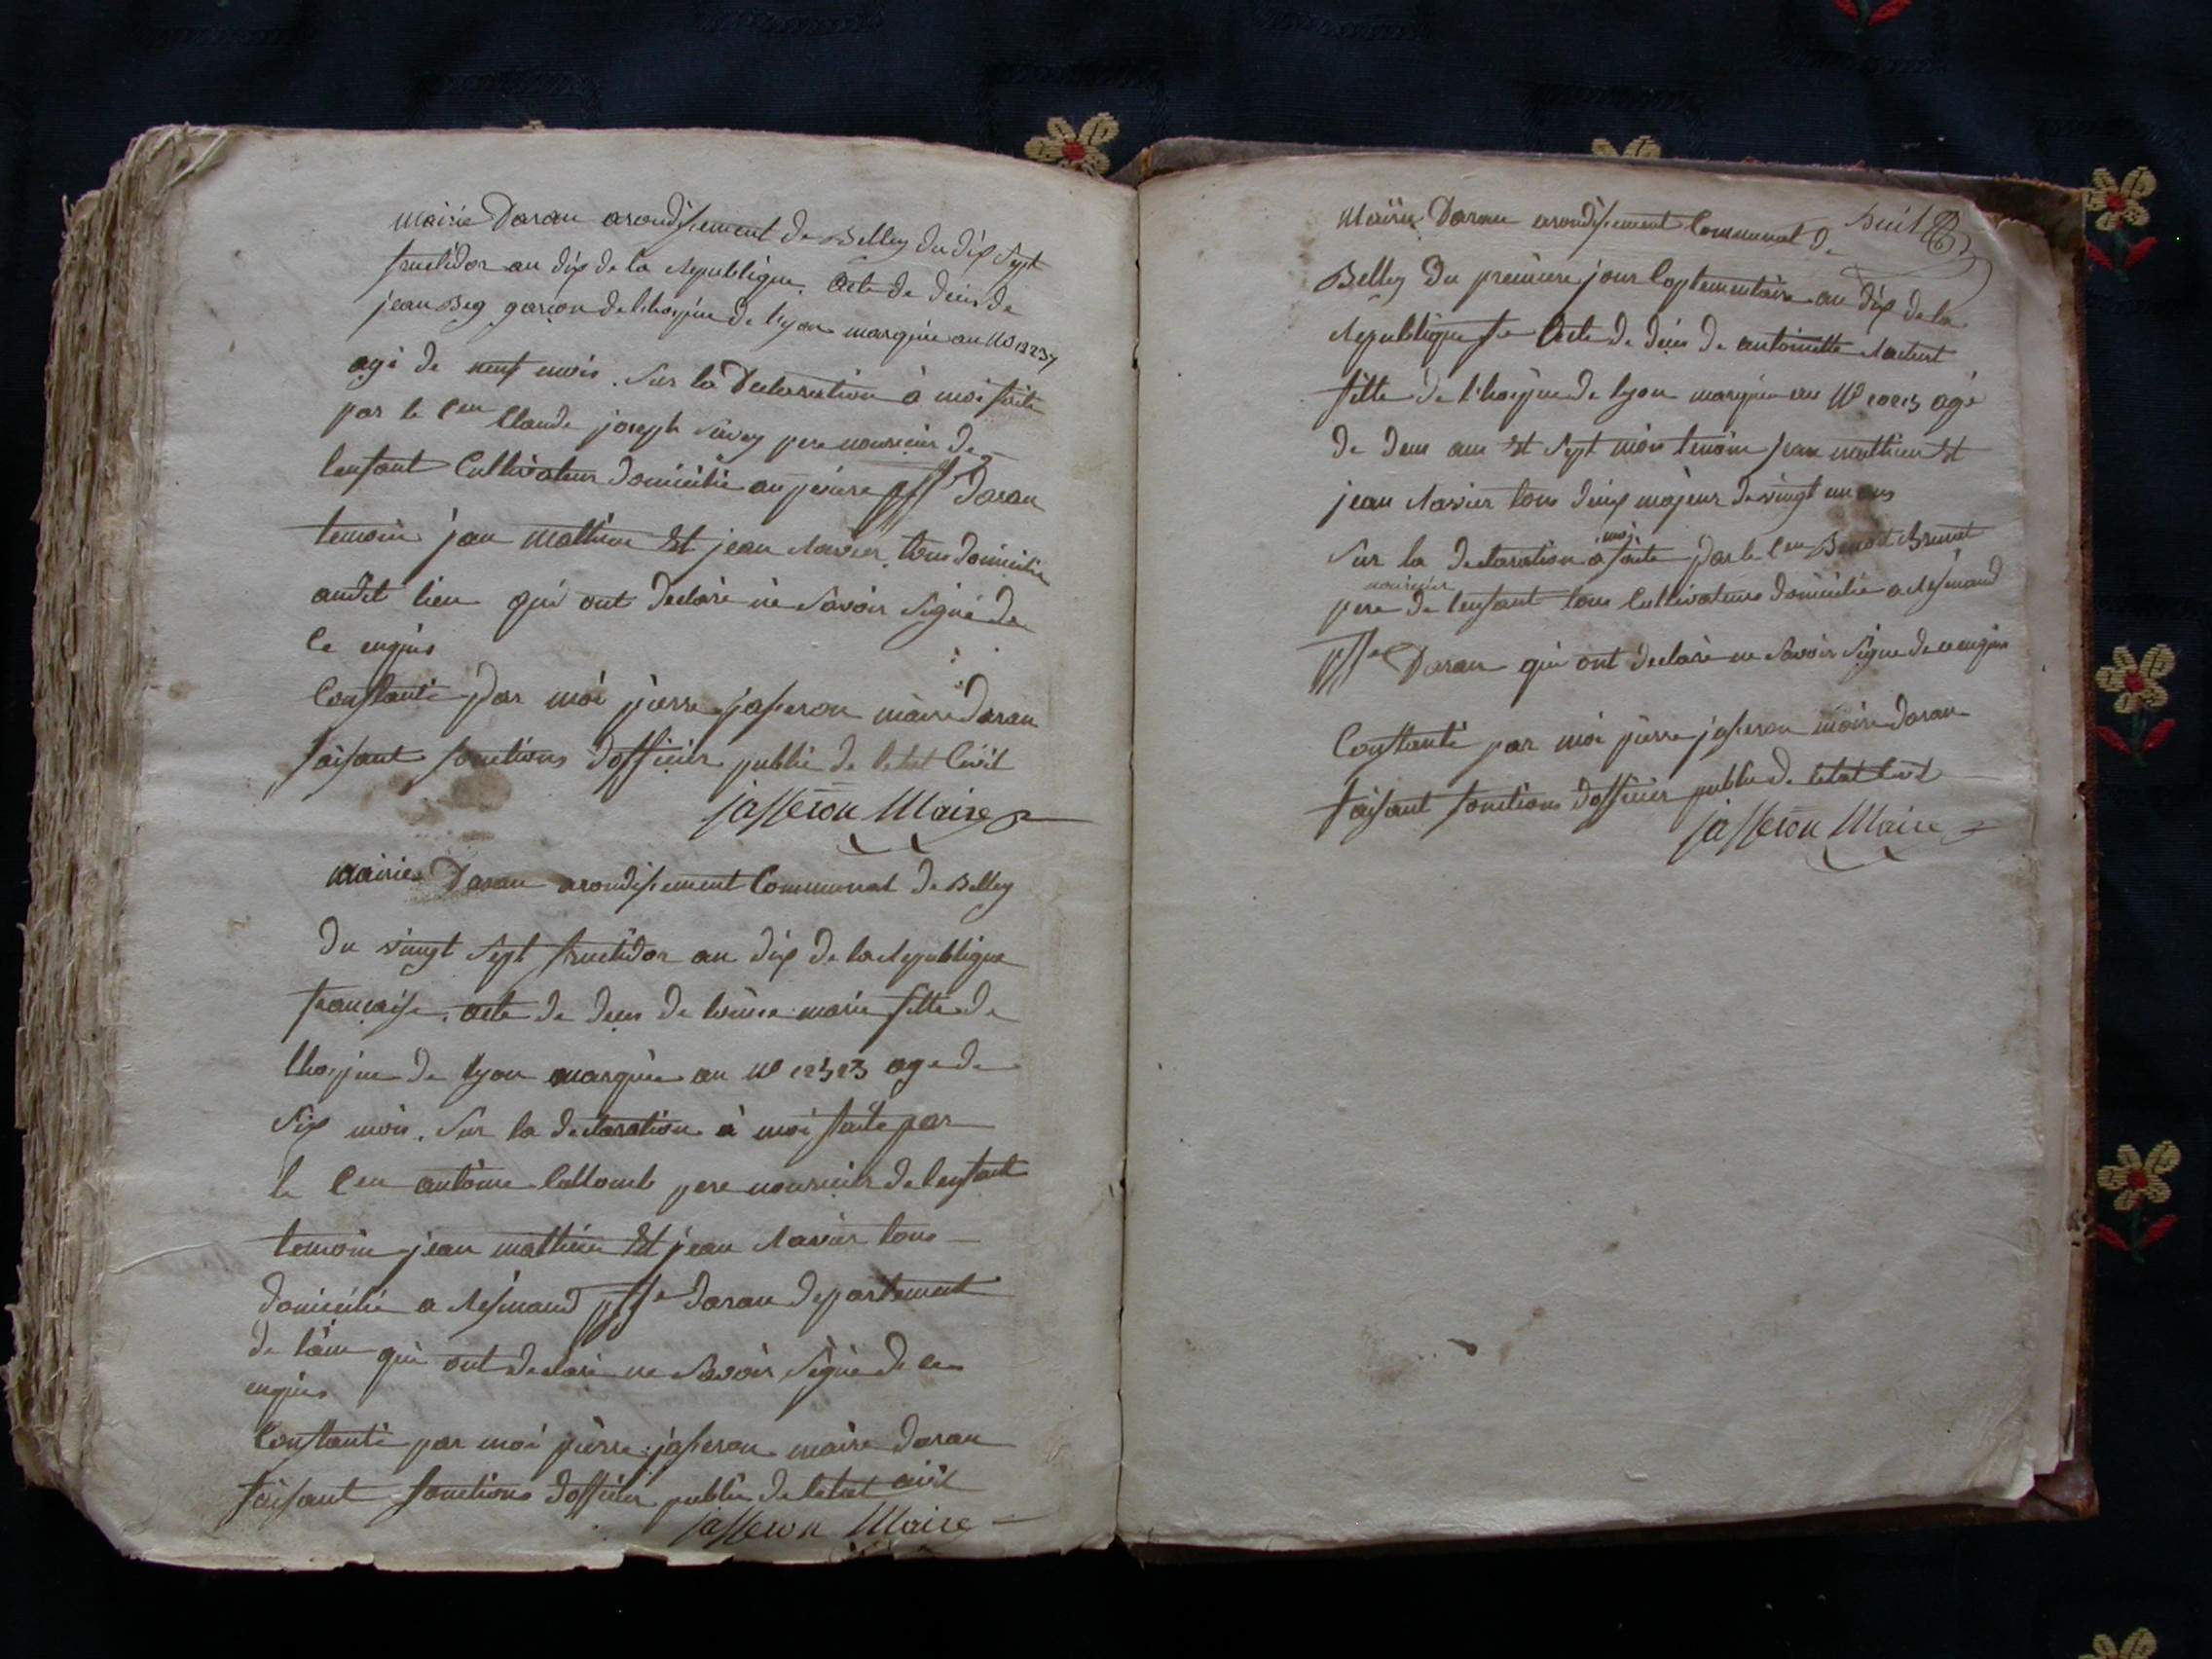 mairie Daran arondissement de Belley du dix sept
fructidor an dix de la republique. acte de deces de
jean Beg garcon de l'hospice de lyon marquée au No 12237
agé de neuf mois. sur la declaration à moi faite
par le Cen Claude joseph Savey pere nouricier de
lenfant Cultivateur domicilié au pesieu psse Daran
temoin jean mathieu Et jean Ravier tous domicilié
audit lieu qui ont declaré ne savoir signé de
ce enquis
Constanté par moi pierre jasseron maire daran
faisant fonctions dofficier public de letat Civil
jasseron Maire
mairie Daran arondissement Communal de Belley
du vingt sept fructidor an dix de la republique
francaise. acte de deces de marie fille de
lhospice de lyon marquée au No 12323 age de
six mois. sur la declaration à moi faite par
le Cen antoine Collomb pere nouricier de lenfant
temoin jean mathieu Et jean Ravier tous
domicilié a Resinand psse daran departement
de lain qui ont declaré ne savoir signé de ce
enquis
Constanté par moi pierre jasseron maire daran
faisant fonctions dofficier public de letat civil
jasseron Maire
huit
Mairie Daran arondissement Communal de
Belley Du premiere jour Coplementaire an dix de la
Republique fse acte de deces de antoinette
fille de l'hospice de lyon marquée au No 10213 agé
de deux ans Et sept mois temoin jean mathieu Et
jean Ravier tous deux majeur de vingt un ans
moi
sur la declaration à faite par le Cen Benoit Brunet
nouricier
pere de lenfant tous Cultivateurs domicilié a Resinand
psse Daran qui ont declaré ne savoir signe de ce enquis
Constanté par moi pierre jasseron maire daran
faisant fonctions dofficier public de letat Civil
jasseron Maire